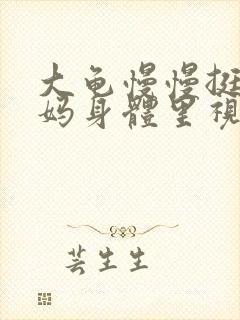 大龟慢慢挺
妈身體里視
芸生生